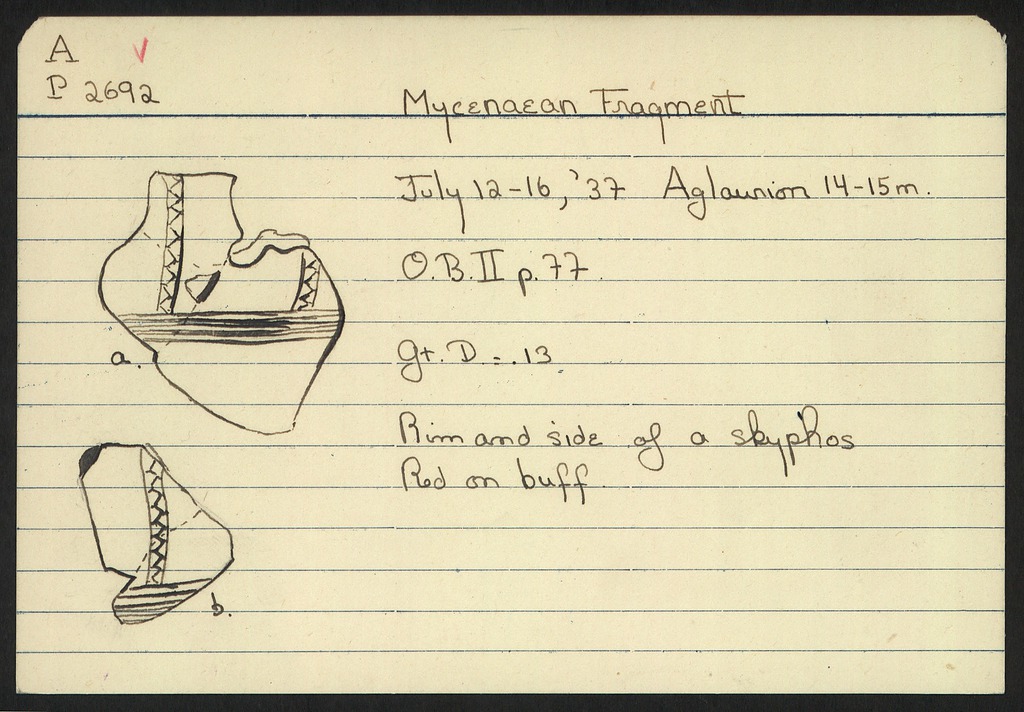 A
P 2692
Mycenaean Fragment
July 12-16, '37 Aglaurion 14-15m.
O.B. II p. 77
Gt. D = .13
Rim and side of a skyphos
Red on buff
a.
b.